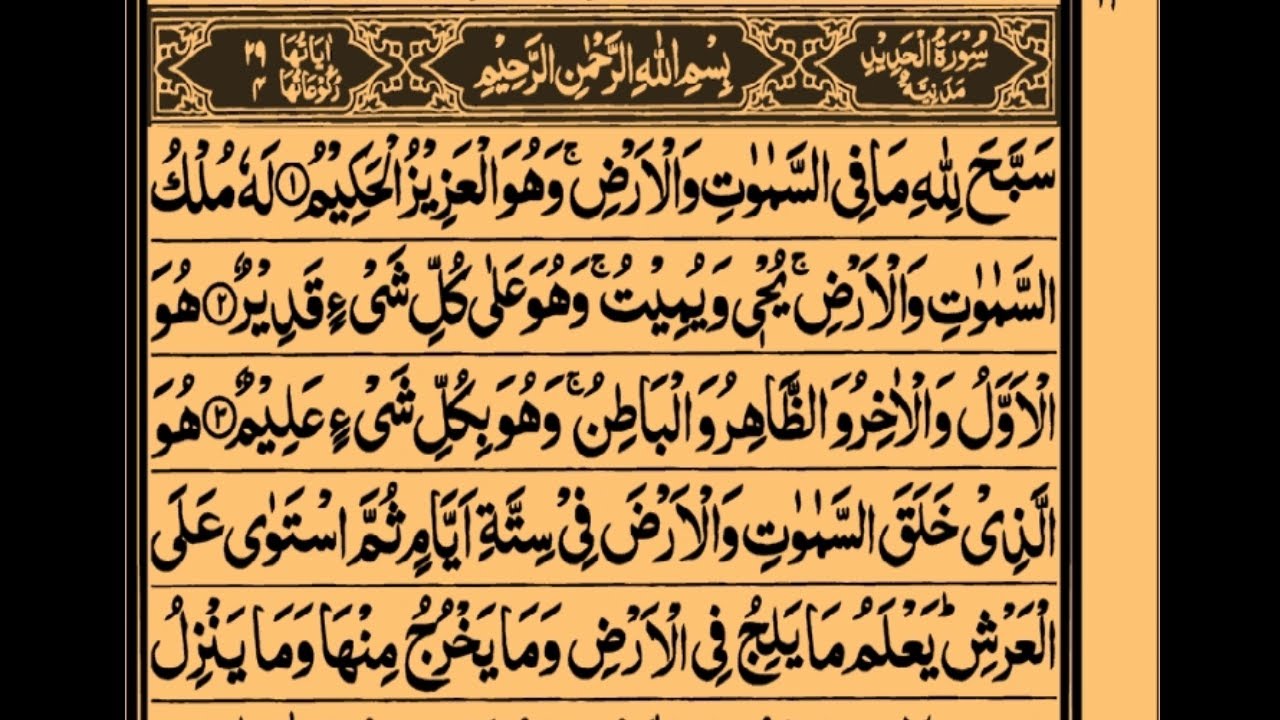 سُوْرَةُ الْحَدِيْدِ مَدَنِيَّةٌ
بِسْمِ اللهِ الرَّحْمٰنِ الرَّحِيْمِ
اٰيَاتُهَا ٢٩
رُكُوْعَاتُهَا ٤
سَبَّحَ لِلّٰهِ مَا فِى السَّمٰوٰتِ وَالْاَرْضِ ۚ وَهُوَ الْعَزِيْزُ الْحَكِيْمُ ① لَهٗ مُلْكُ
السَّمٰوٰتِ وَالْاَرْضِ ۚ يُحْيٖ وَيُمِيْتُ ۚ وَهُوَ عَلٰى كُلِّ شَىْءٍ قَدِيْرٌ ② هُوَ
الْاَوَّلُ وَالْاٰخِرُ وَ الظَّاهِرُ وَ الْبَاطِنُ ۚ وَهُوَ بِكُلِّ شَىْءٍ عَلِيْمٌ ③ هُوَ
الَّذِىْ خَلَقَ السَّمٰوٰتِ وَالْاَرْضَ فِىْ سِتَّةِ اَيَّامٍ ثُمَّ اسْتَوٰى عَلَى
الْعَرْشِ ؕ يَعْلَمُ مَا يَلِجُ فِى الْاَرْضِ وَمَا يَخْرُجُ مِنْهَا وَمَا يَنْزِلُ